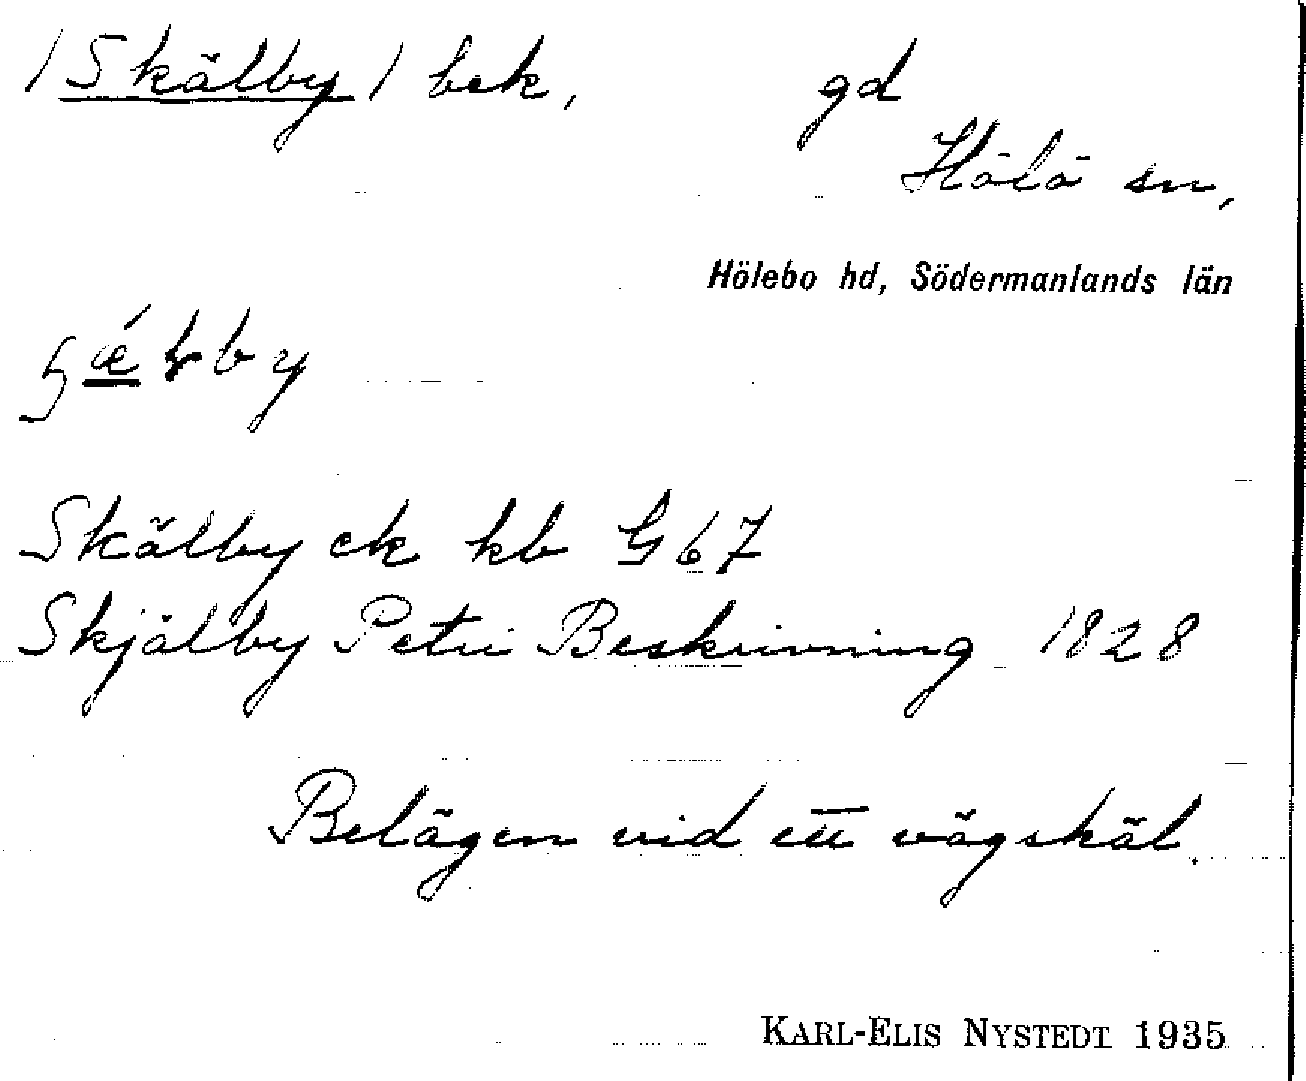 /Skälby/ bek, gd
Hölö sn,
Hölebo hd, Södermanlands län
Skälby ek kb G67
Skjälby Petri Beskrivning 1828
Belägen vid ett vägskäl.
KARL-ELIS NYSTEDT 1935